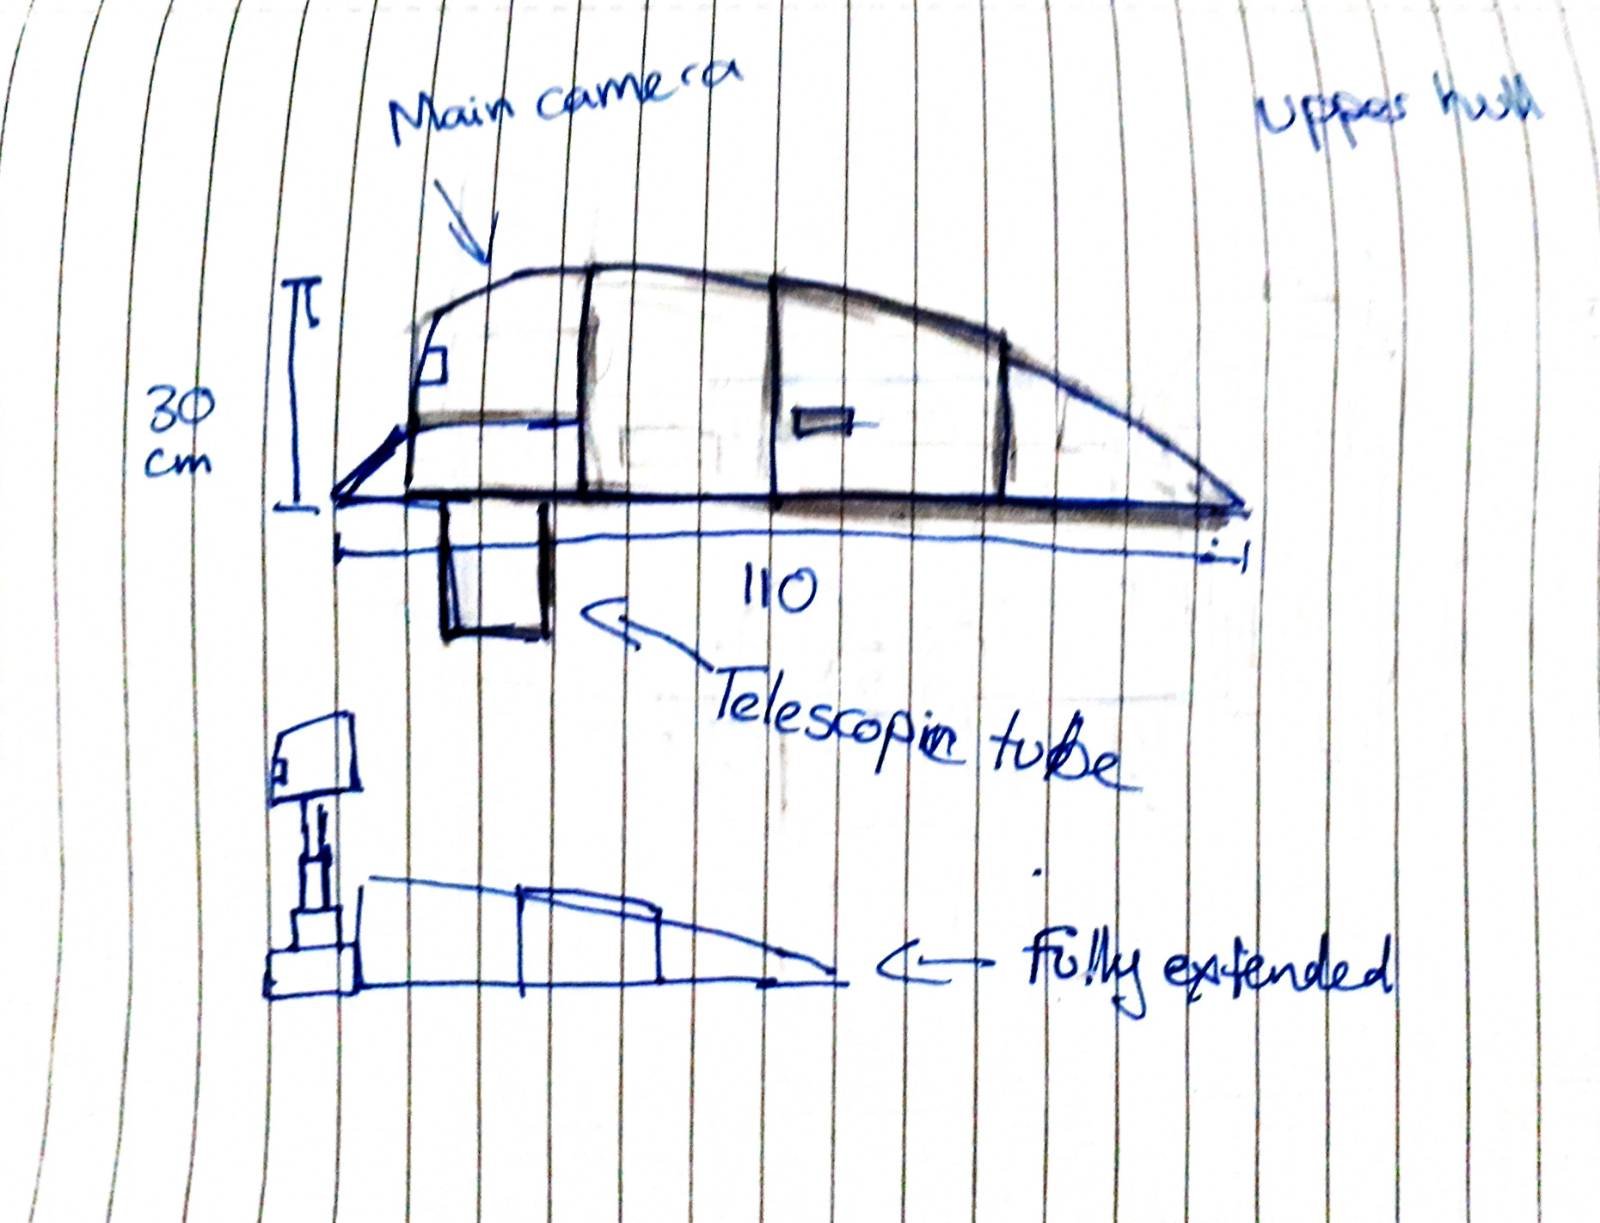 Main camera
upper hull
30
cm
110
Telescopic tube
Fully extended